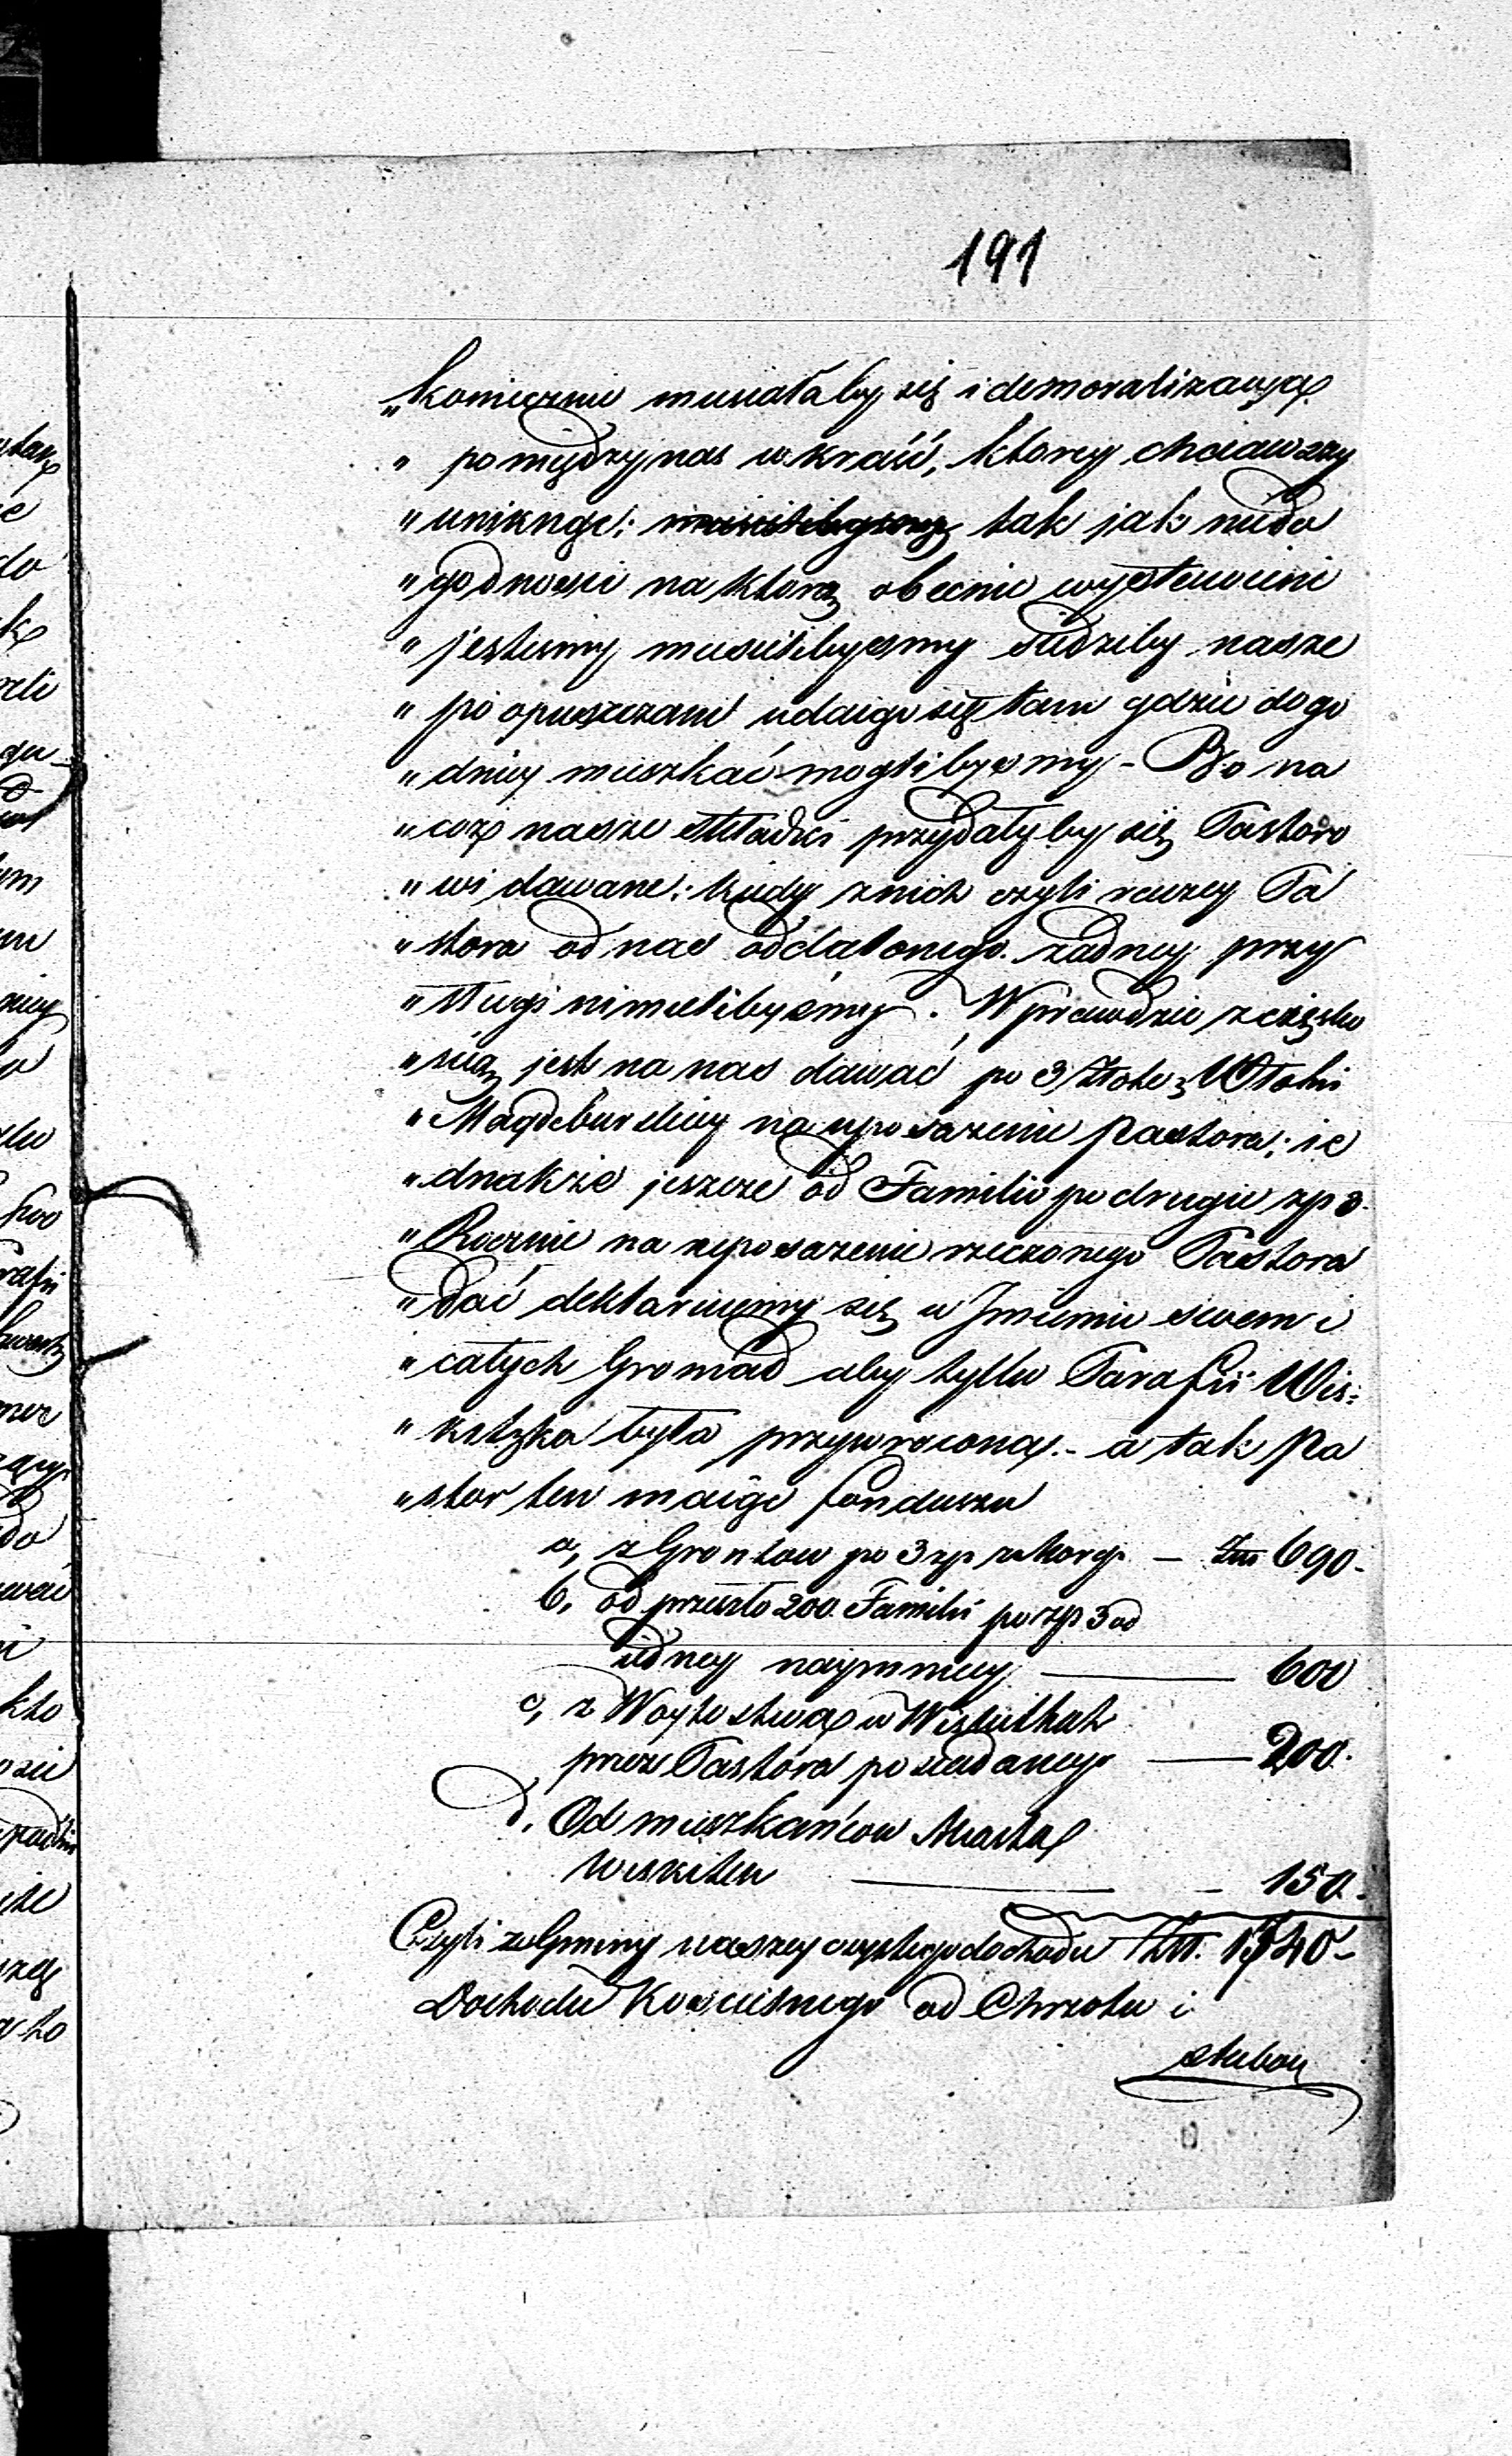 191
„koniecznie musiałaby się i demoralizacya
„pomiędzy nas wkraść, ktorey chciawszy
„uniknąć: tak jak niedo
„godnosci na ktorą obecnie wystawieni
„jestesmy musielibysmy siedziby nasze
„po opuszczani udaiąc się tam gdzie dogo
„dniey mieszkać moglibysmy - Bo na
„coż nasze składki przydałyby się Pastoro
„wi dawane: kiedy znich czyli raczey Pa
„stora od nas oddalonego żadney przy
„sługi niemielibysmy. Wprawdzie zciężko
„scią jest na nas dawać po 3 Złote z Włoki
„Magdeburskiey na uposażenie Pastora; ie
„dnakże jeszcze od Familii po drugie zp 3.
„Rocznie na uposażenie rzeczonego Pastora
„dać deklaruiemy się w Imieniu swem i
„całych Gromad aby tylko Parafii Wis:
„kitzka była przywrocona.- a tak Pa
„stor ten maiąc fundusza
a, z Grontow po 3 zp - 690.
b, od przeszło 200. Familii po zp 3 od
iedney naymniey 600
c, z Woytostwa w Wiskitkach
przez Pastora posiadanego 200.
d. Od mieszkańcow Miasta
Wiskitek - 150.
Czyli z Gminy naszey czystego dochodu 1740-
Dochodu Koscielnego od Chrztu i
slubow